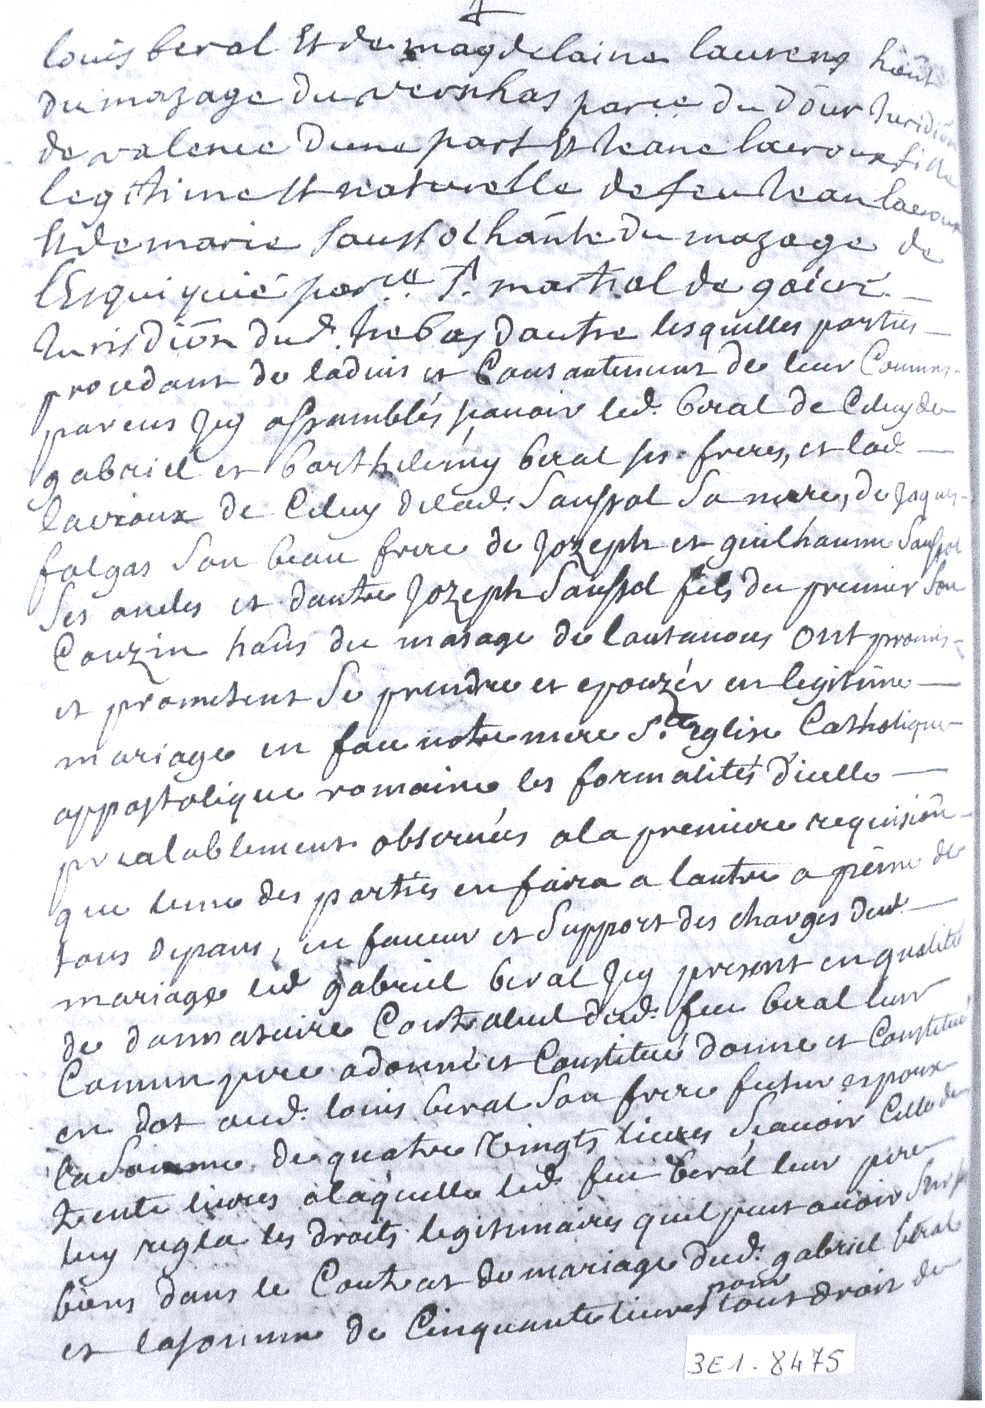 louis beral et de magdelaine laurens hant
du mazage du vernhas par.e du dour Juridion
de valence dune part et Jeane lacroux fille
legitime et naturelle de feu Jean lacroux
et de marie Saussol hante du mazage de
lEsquiquié par.ce St. martial de
Juridion dud. trebas dautre lesquelles parties
procedant de ladvis et Consantement de leur Comuns
parens Jcy assamblés scavoir led. beral de Celuy de
gabriel et barthelemy beral ses freres, et lad.
lacroux de Celuy delad. Saussol Sa mere, de Jaques
falgas Son beau frere de Jozeph et guilhaume Saussol
Ses oncles et dautre Jozeph Saussol fils du premier Son
Couzin hans du masage de ont promis
et prometent Se prendre et epouzér en legitime
mariage en face notre mere Ste. Eglise Catholique
appostolique romaine les formalités d'icelle
prealablement observées ala premiere requisión
que lune des parties en faira a lautre a peine de
tous depans, en faveur et Support des charges dud.
mariage led gabriel beral Jcy present en qualité
de donnataire Contratuel dud. feu beral leur
Comun pere a donné et Constitué donne et Constitue
en dot aud. louis beral Son frere futur espoux
la Somme de quatre vingts livres Scavoir Celle de
trente livres alaquelle led. feu beral leur pere
luy regla les droits legitimaires quil peut avoir Sur Ses
biens dans le Contrat de mariage dud. gabriel beral
et la somme de Cinquante livres pour tout droit de
3E1. 8475